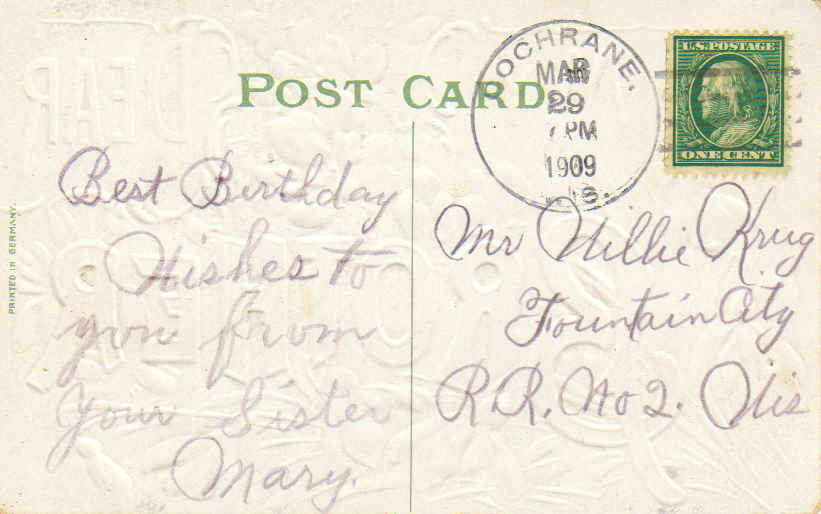 POST CARD
COCHRANE,
MAR
29
7 PM
1909
WIS.
U.S. POSTAGE
ONE CENT
PRINTED IN GERMANY.
Best Birthday
Wishes to
you from
your Sister
Mary.
Mr Willie Krug
Fountain City
R.R. No 2. Wis
DEAR